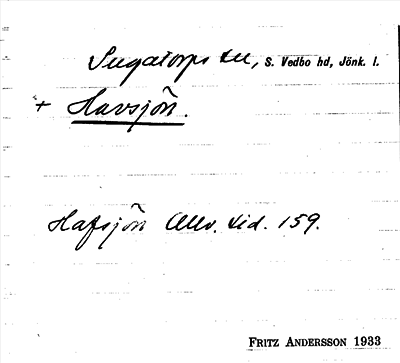 Sugatorps sn, S. Vedbo hd, Jönk. l.
+ Havsjön.
Hafsjön Allv. tid. 159.
FRITZ ANDERSSON 1933